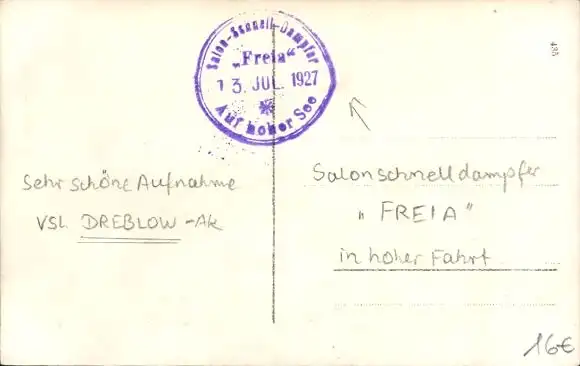 Salon-Schnell-Dampfer
„Freia“
13. JUL. 1927
Auf hoher See
Sehr schöne Aufnahme
VSL. DREBLOW-AK
Salonschnelldampfer
„FREIA“
in hoher Fahrt
16€